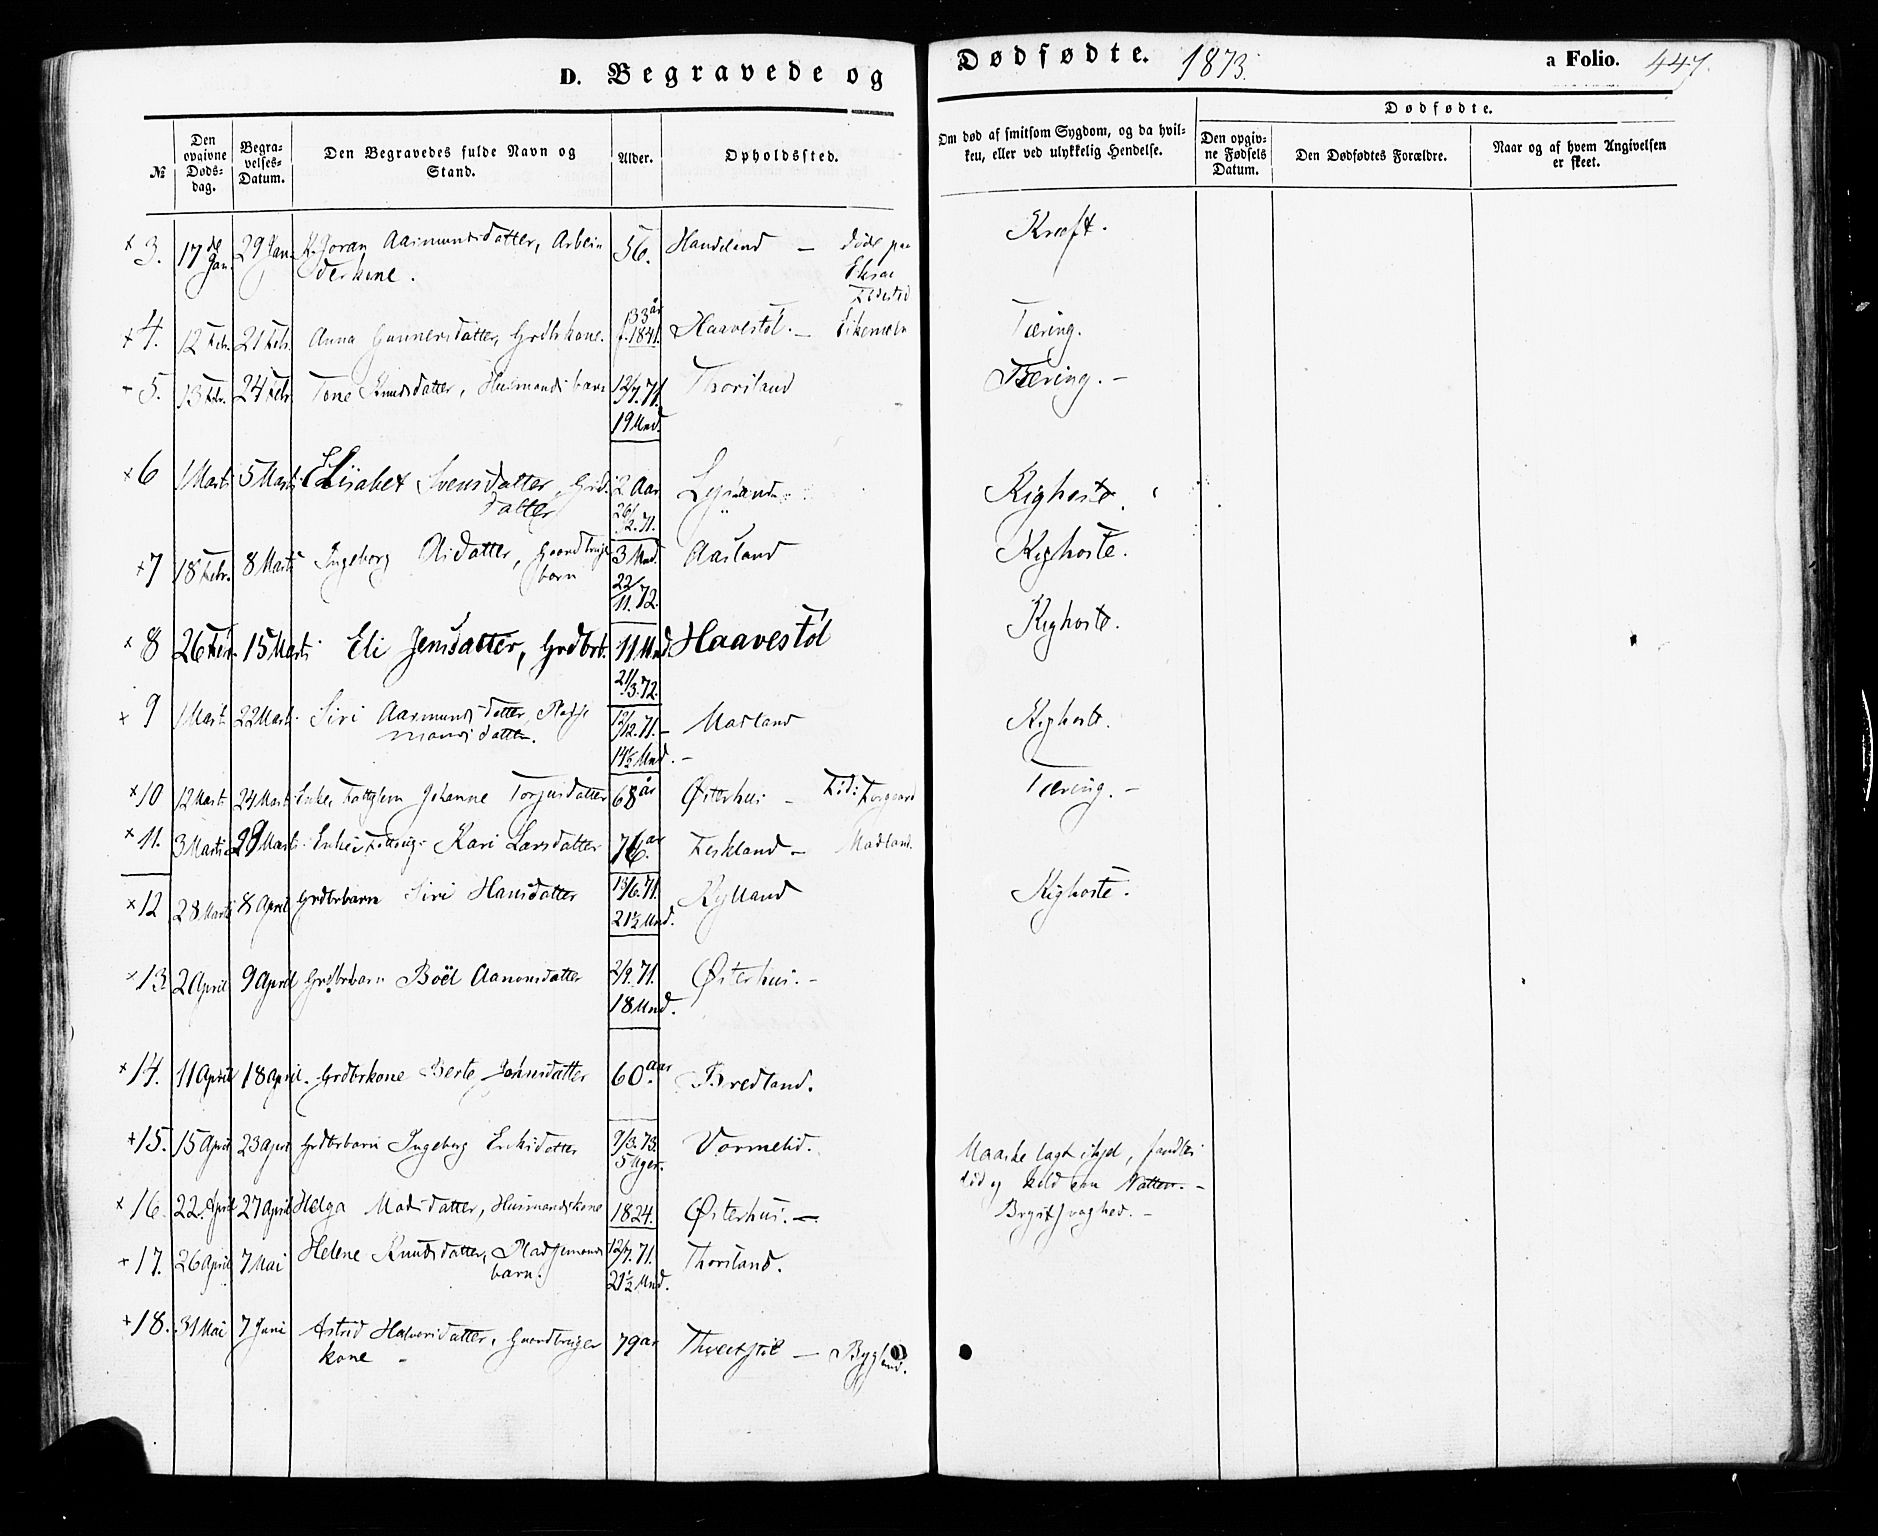 D. Begravede og Dødfødte. 1873. a Folio. 447.
№
Den opgivne Døds-dag.
Begra-velses-Datum.
Den Begravedes fulde Navn og Stand.
Alder.
Opholdssted.
Om død af smitsom Sygdom, og da hvil-ken, eller ved ulykkelig Hendelse.
Dødfødte.
Den opgiv-ne Fødsels Datum.
Den Dødfødtes Forældre.
Naar og af hvem Angivelsen er skeet.
3. 17de Jan. 29 Jan. Joran Aasmundsdatter, Arbei 56. Handeland — døde paa Kræft.
derkone.
4. 12 Febr. 21 Febr. Anna Gunnersdatter, Grdbkone. 33 år f. 1841. Haavestøl. — Tæring.
5. 13 Febr. 24 Febr. Tone Knudsdatter, Husmandsbarn 12/7.71. Thorsland Tæring. —
19 Mnd.
6 1 Marts 5 Marts Elisabet Svensdatter, Grd. 2 Aar Kighoste.
datter 26/2.71.
7 18 Febr. 8 Marts Ingeborg Olsdatter, Gaardbruger 3 Mnd. Aasland Kighoste.
barn 22/11.72.
8 26 Febr. 15 Marts Eli Jensdatter, Grdbrb. 11 Mnd. Haavestøl Kighoste.
21/3.72.
9 1 Marts 22 Marts. Siri Aasmundsdatter, Pladse 12/12.71. — Madland Kighoste.
mandsdatter. 14½ Mnd. —
10 12 Marts 24 Marts Enke, Fattiglem Johanne Torjusdatter 68 år Østerhus — Tæring. —
11. 3 Marts 29 Marts. Enke, Kari Larsdatter 76. aar Eskeland — Madland.
12 28 Marts 8 April Grdbrbarn Siri Hansdatter 13/6.71. Kylland Kighoste.
21½ Mnd.
13. 2 April 9 April Grdbrbarn Boël Aanonsdatter 2/9.71. Østerhus. —
18 Mnd.
14. 11 April 18 April. Grdbrkone Berte Johnsdatter 60. aar Bredland.
15. 15 April 23 April Grdbrbarn Ingeborg Eriksdatter 9/3.73. Vormelid. Maaske lagt ihjel, fandtes
5 Uger. død og kold om Natten. —
16. 22. April 27 April Helga Madsdatter, Husmandskone 1824. Østerhus. — Brystsvaghed. —
17. 26 April 7 Mai Helene Knudsdatter, Pladsemands 12/7.71. Thorsland.
barn. 21½ Mnd.
18. 31 Mai 7 Juni Astrid Halvorsdatter, Gaardbruger 79 aar — Bygland.
kone —